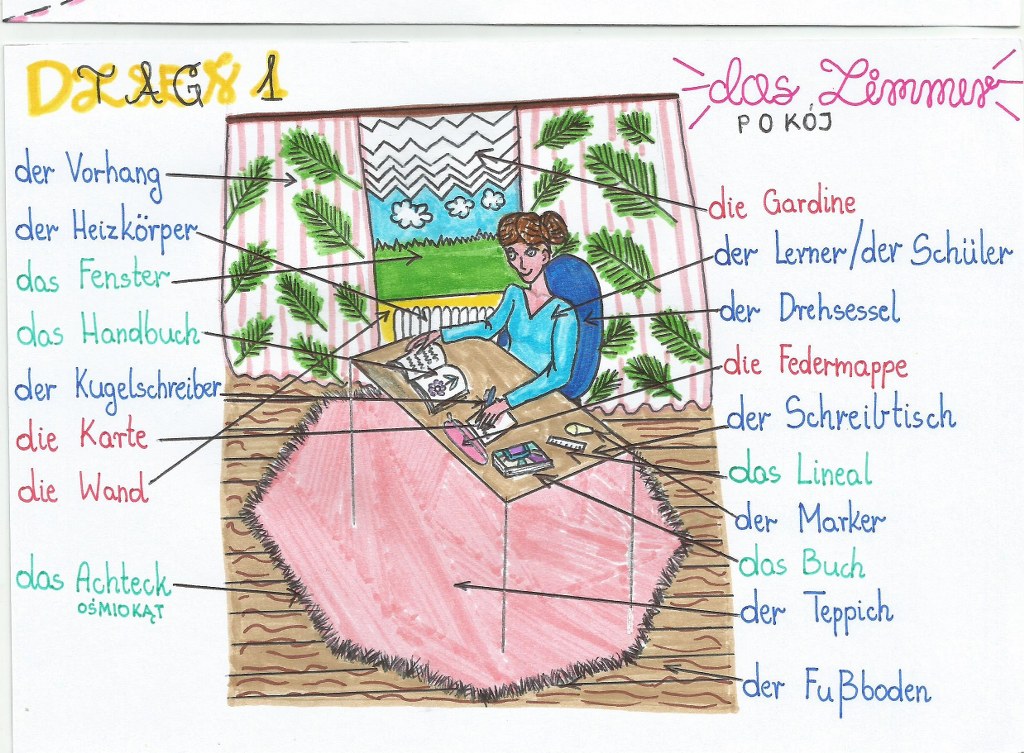 DZIEŃ 1
TAG 1
das Zimmer
POKÓJ
der Vorhang
der Heizkörper
das Fenster
das Handbuch
der Kugelschreiber
die Karte
die Wand
das Achteck
OŚMIOKĄT
die Gardine
der Lerner/der Schüler
der Drehsessel
die Federmappe
der Schreibtisch
das Lineal
der Marker
das Buch
der Teppich
der Fußboden